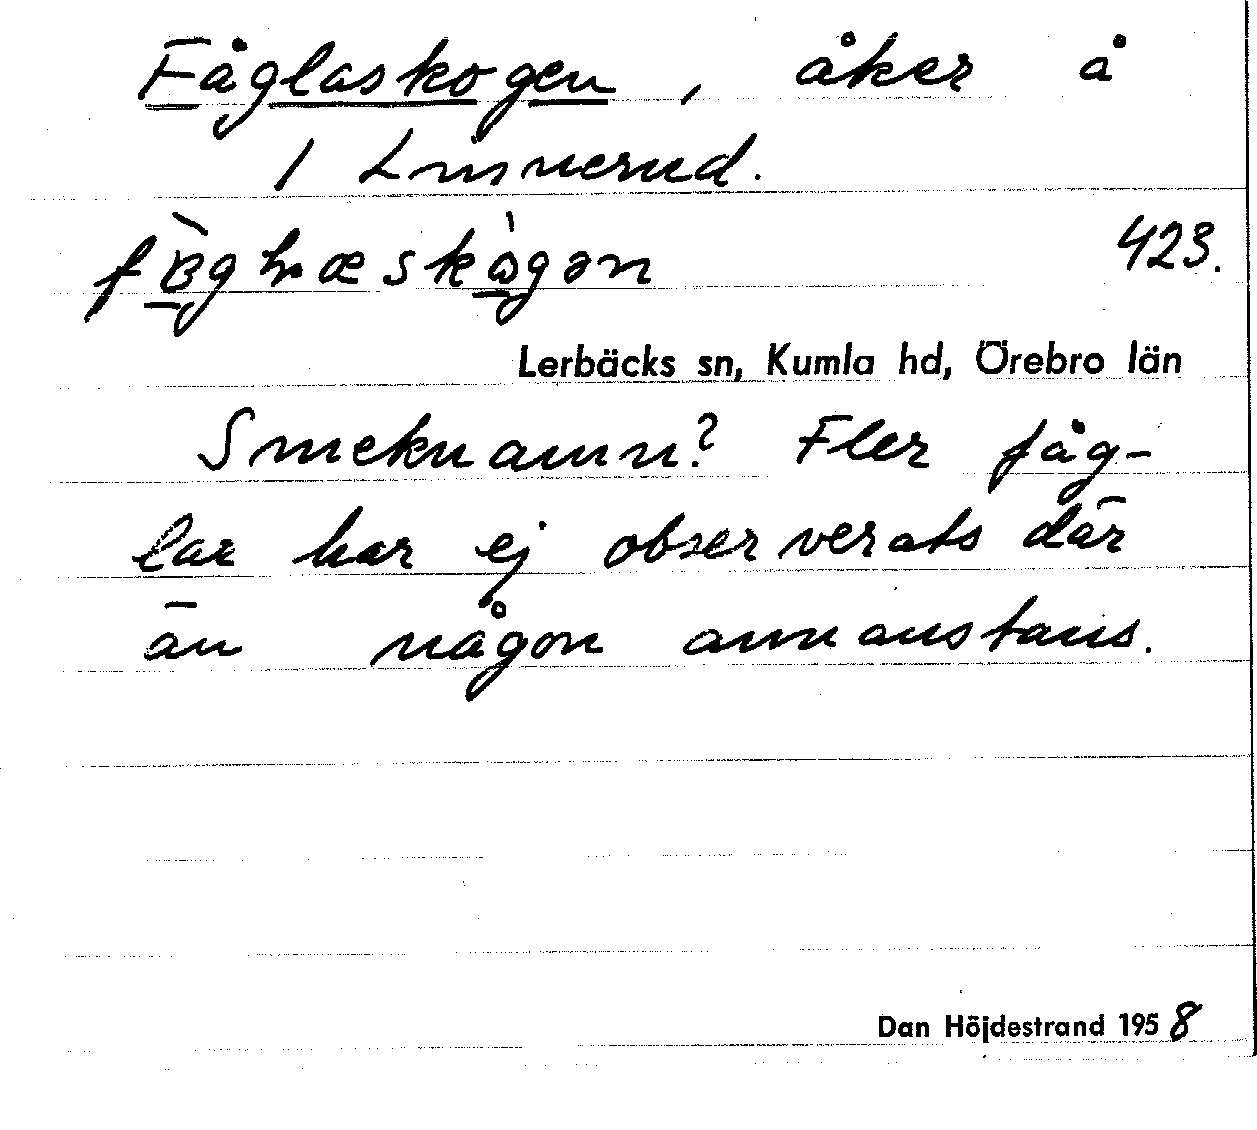 Fåglaskogen, åker å
1 Lusnerud.
423.
Lerbäcks sn, Kumla hd, Örebro län
Smeknamn? Fler fåg-
lar har ej observerats där
än någon annanstans.
Dan Höjdestrand 1958